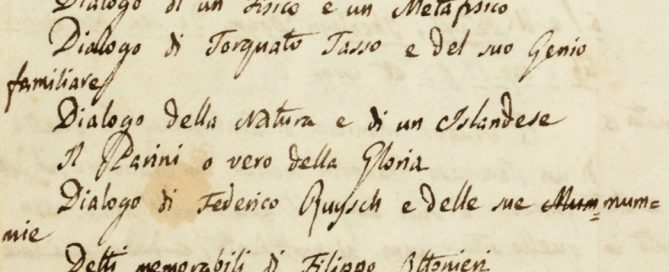 Dialogo di un Fisico e un Metafisico
Dialogo di Torquato Tasso e del suo Genio
familiare
Dialogo della Natura e di un Islandese
Il Parini o vero della Gloria
Dialogo di Federico Ruysch e delle sue Mum= mum=
mie
Detti memorabili di Filippo Ottonieri